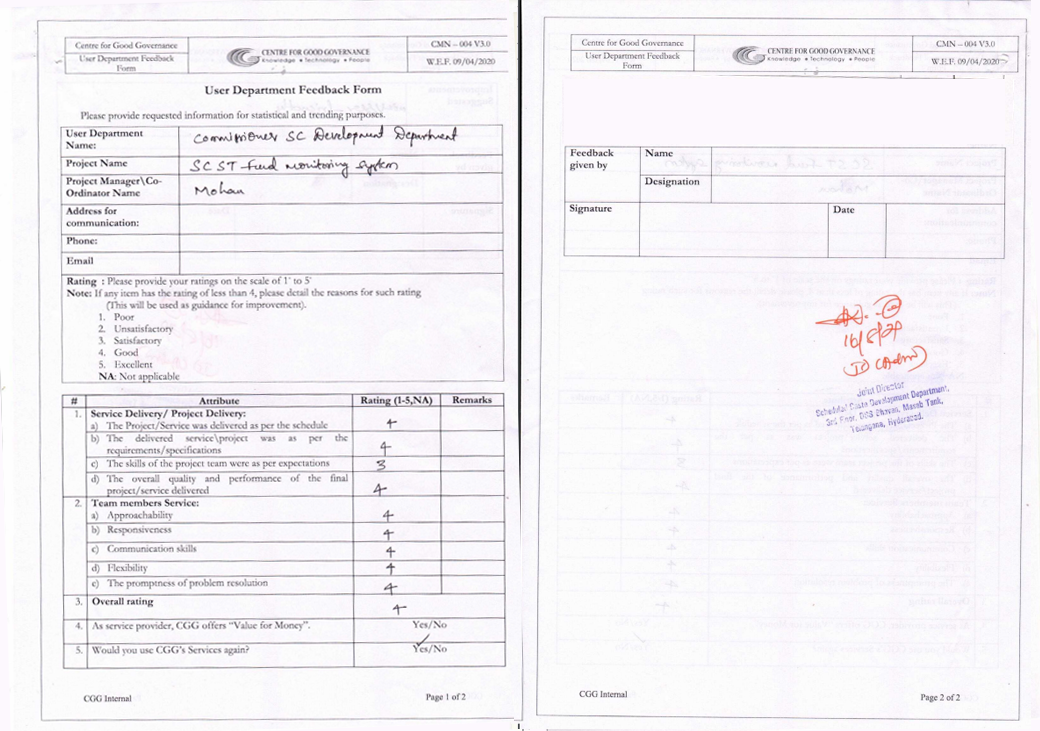 Centre for Good Governance
User Department Feedback
Form
CENTRE FOR GOOD GOVERNANCE
Knowledge • Technology • People
CMN – 004 V3.0
W.E.F. 09/04/2020
User Department Feedback Form
Please provide requested information for statistical and trending purposes.
User Department
Name:
Commissioner SC Development Department
Project Name
SC ST Fund monitoring system
Project Manager\Co-
Ordinator Name
Mohan
Address for
communication:
Phone:
Email
Rating : Please provide your ratings on the scale of 1' to 5'
Note: If any item has the rating of less than 4, please detail the reasons for such rating
(This will be used as guidance for improvement).
1. Poor
2. Unsatisfactory
3. Satisfactory
4. Good
5. Excellent
NA: Not applicable
# Attribute Rating (1-5,NA) Remarks
1. Service Delivery/ Project Delivery:
a) The Project/Service was delivered as per the schedule 4
b) The delivered service\project was as per the
requirements/specifications 4
c) The skills of the project team were as per expectations 3
d) The overall quality and performance of the final
project/service delivered 4
2. Team members Service:
a) Approachability 4
b) Responsiveness 4
c) Communication skills 4
d) Flexibility 4
e) The promptness of problem resolution 4
3. Overall rating 4
4. As service provider, CGG offers "Value for Money". Yes/No
5. Would you use CGG's Services again? Yes/No
CGG Internal Page 1 of 2
Centre for Good Governance
User Department Feedback
Form
CENTRE FOR GOOD GOVERNANCE
Knowledge • Technology • People
CMN – 004 V3.0
W.E.F. 09/04/2020
Feedback
given by
Name
Designation
Signature
Date
JD (Admn)
Joint Director
Scheduled Caste Development Department,
3rd Floor, DSS Bhavan, Masab Tank,
Telangana, Hyderabad.
CGG Internal Page 2 of 2